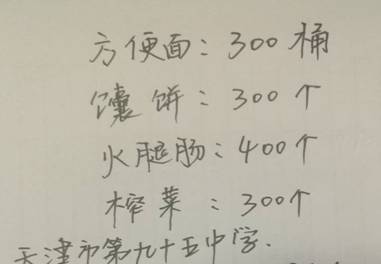 方便面：300桶
馕饼：300个
火腿肠：400个
榨菜：300个
天津市第九十五中学.